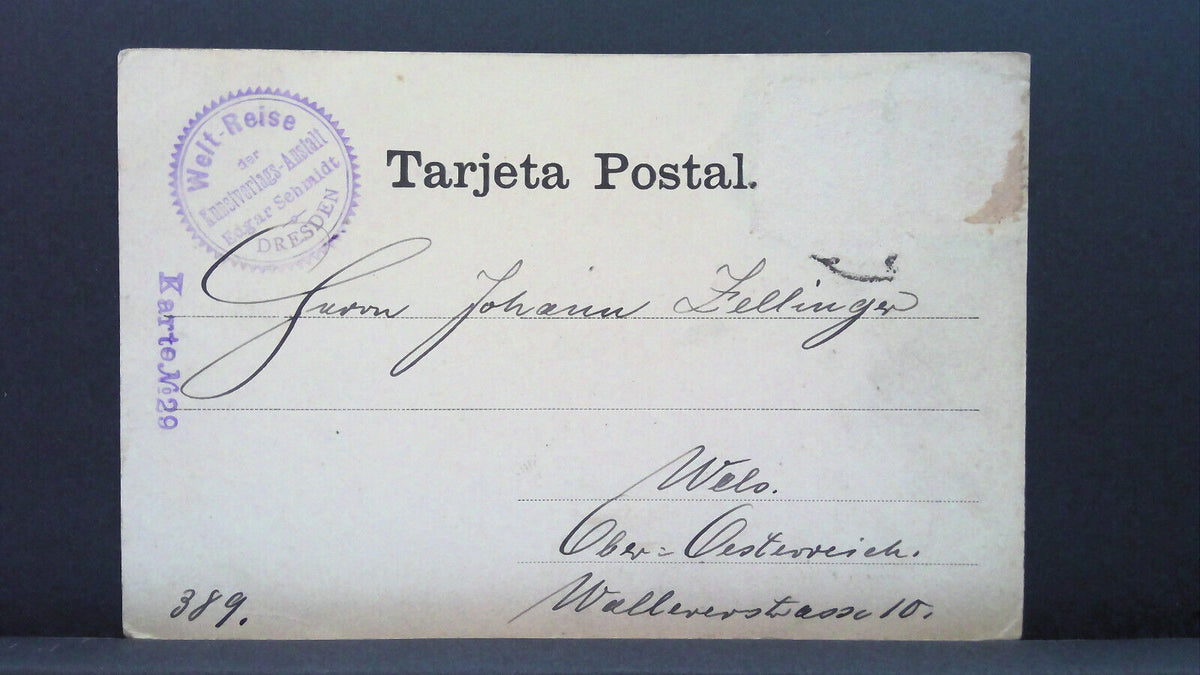 Welt-Reise
der
Kunstverlags-Anstalt
Edgar Schmidt
DRESDEN
Tarjeta Postal.
Karte No 29
Herrn Johann Zellinger
Wels.
Ober=Oesterreich.
Wallererstrasse 10.
389.